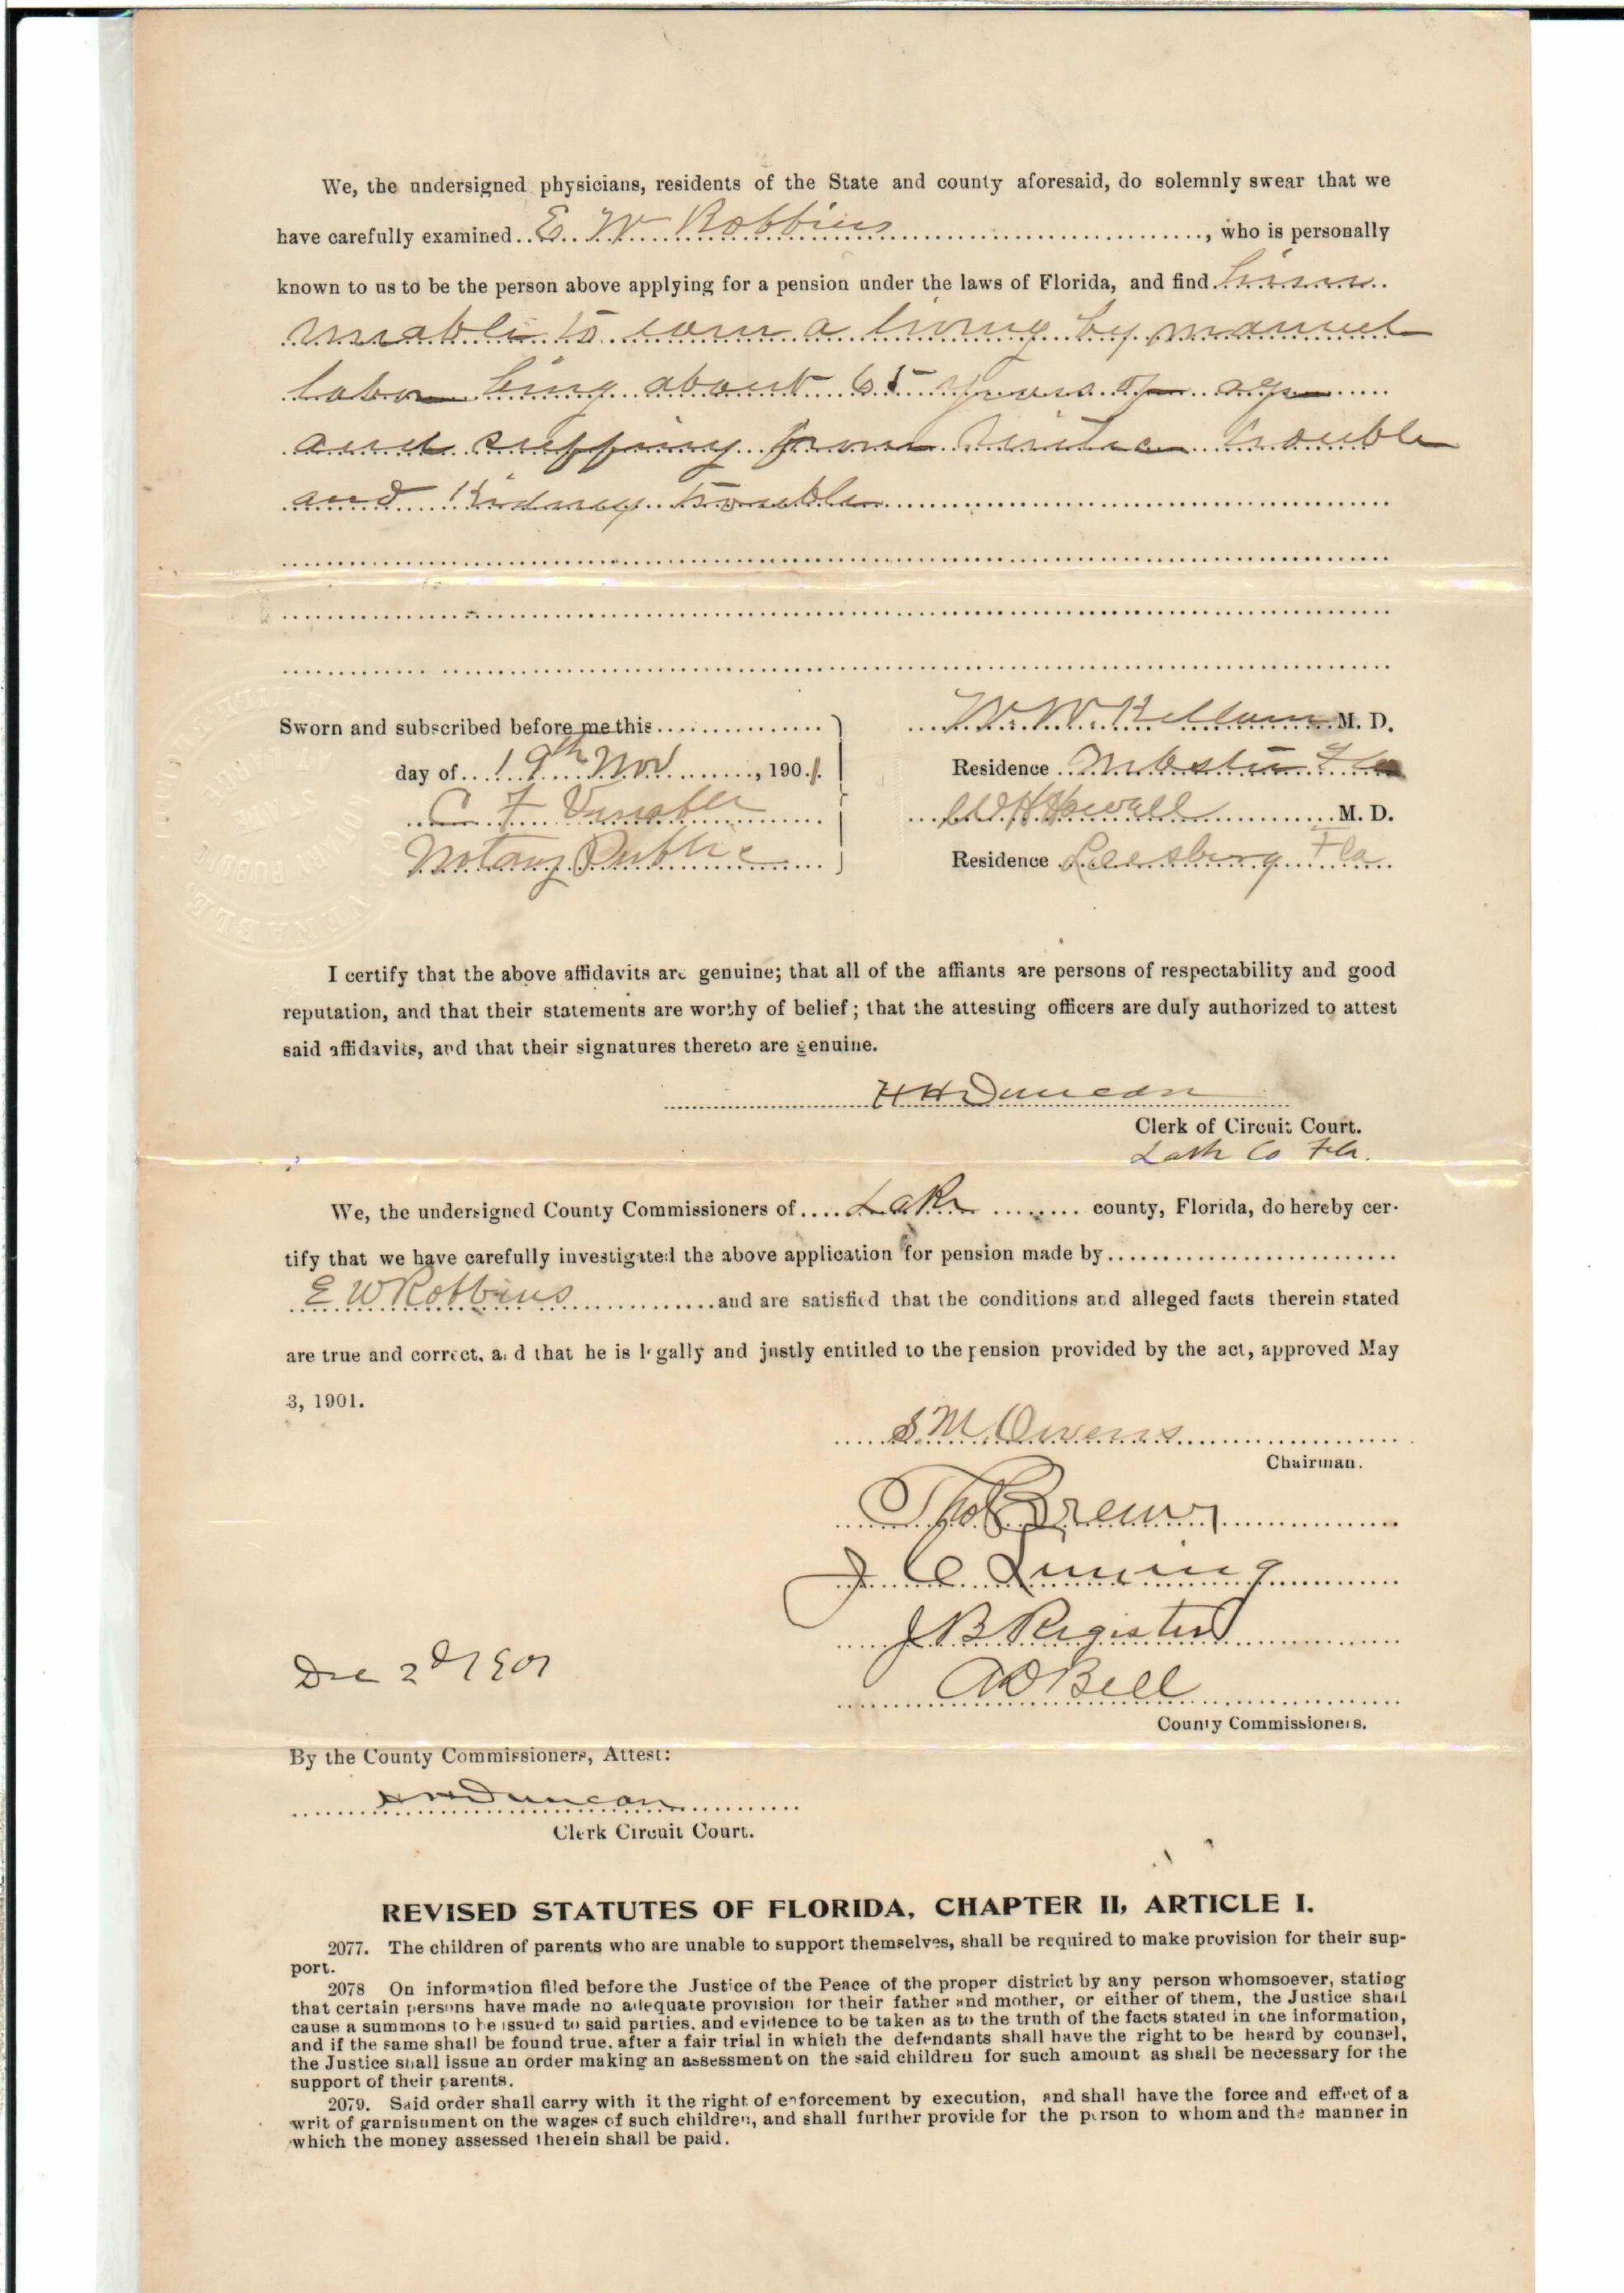 We, the undersigned physicians, residents of the State and county aforesaid, do solemnly swear that we
have carefully examined E. W. Robbins, who is personally
known to us to be the person above applying for a pension under the laws of Florida, and find him
unable to earn a living by manuel
labor being about 65 years of age
and suffring from trouble
and Kidney trouble
Sworn and subscribed before me this
day of 19th Nov, 1901.
C F Venable
Notary Public
W. W. Kellam M. D.
Residence Webster Fla
W H Howell M. D.
Residence Leesburg Fla
I certify that the above affidavits are genuine; that all of the affiants are persons of respectability and good
reputation, and that their statements are worthy of belief; that the attesting officers are duly authorized to attest
said affidavits, and that their signatures thereto are genuine.
H H Duncan
Clerk of Circuit Court.
Lake Co Fla.
We, the undersigned County Commissioners of Lake county, Florida, do hereby cer-
tify that we have carefully investigated the above application for pension made by
E W Robbins and are satisfied that the conditions and alleged facts therein stated
are true and correct, and that he is legally and justly entitled to the pension provided by the act, approved May
3, 1901.
S M Owens
Chairman.
Thos
J C Luning
J B Register
A D Bell
County Commissioners.
Dec 2d 1901
By the County Commissioners, Attest:
H H Duncan
Clerk Circuit Court.
REVISED STATUTES OF FLORIDA, CHAPTER II, ARTICLE I.
2077. The children of parents who are unable to support themselves, shall be required to make provision for their sup-
port.
2078 On information filed before the Justice of the Peace of the proper district by any person whomsoever, stating
that certain persons have made no adequate provision for their father and mother, or either of them, the Justice shall
cause a summons to be issued to said parties, and evidence to be taken as to the truth of the facts stated in the information,
and if the same shall be found true, after a fair trial in which the defendants shall have the right to be heard by counsel,
the Justice shall issue an order making an assessment on the said children for such amount as shall be necessary for the
support of their parents.
2079. Said order shall carry with it the right of enforcement by execution, and shall have the force and effect of a
writ of garnishment on the wages of such children, and shall further provide for the person to whom and the manner in
which the money assessed therein shall be paid.